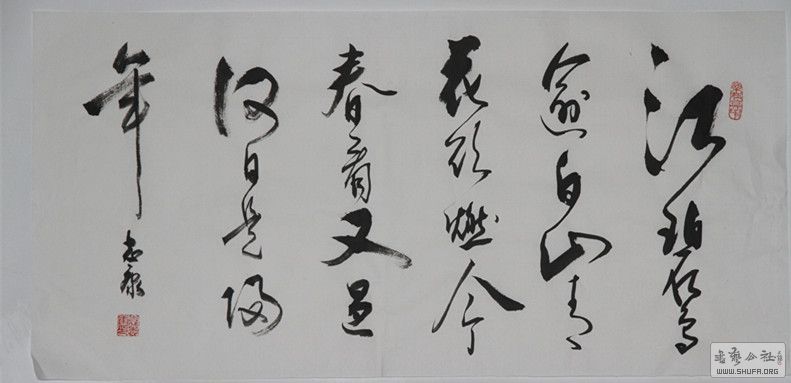 江碧鳥
逾白山青
花欲燃今
春看又過
何日是歸
年
書藝公社
WWW.SHUFA.ORG